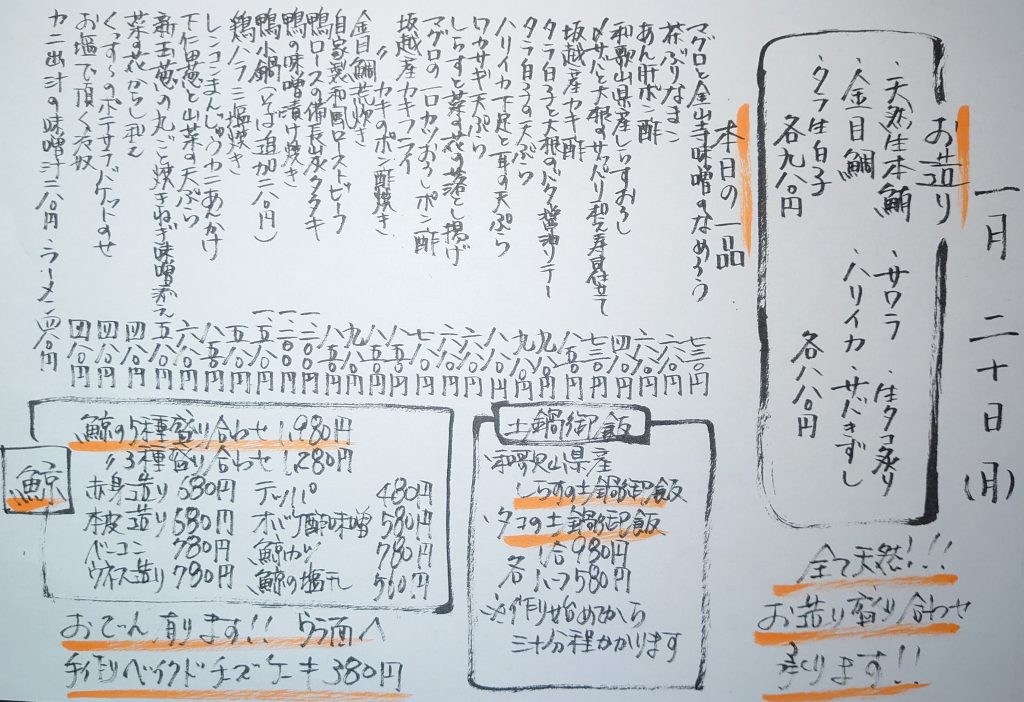 一月二十日(月)
お造り
・天然生本鮪
・金目鯛
・タラ生白子
各九八〇円
・サワラ
・ハリイカ
・生タコ炙り
・サバきずし
各八八〇円
全て天然!!!
お造り盛り合わせ
承ります!!
本日の一品
マグロと金山寺味噌のなめろう 七三〇円
茶ぶりなまこ 六八〇円
あん肝ポン酢
和歌山県産しらすおろし 四八〇円
〆サバと大根のサッパリ和え寿月仕立て 七三〇円
坂越産カキ酢 八五〇円
タラ白子と大根のバタ醤油ソテー 九八〇円
タラ白子の天ぷら 九八〇円
ハリイカ下足と耳の天ぷら 八八〇円
ワカサギ天ぷら
しらすと菜の花の落とし揚げ
マグロの一口カツおろしポン酢 七八〇円
坂越産カキフライ
〃 カキのポン酢焼き
金目鯛荒炊き
自家製和風ローストビーフ
鴨ロースの備長炭タタキ
鴨の味噌漬け焼き
鴨小鍋(そば追加二八〇円)
鶏ハラミ塩焼き
レンコンまんじゅうカニあんかけ
下仁田葱と山菜の天ぷら 六八〇円
新玉葱の丸ごと焼きねぎ味噌添え 五八〇円
菜の花からし和え 四八〇円
くっすーのポテサラバケットのせ 四八〇円
お塩で頂く冷奴 四八〇円
カニ出汁の味噌汁二八〇円 ラーメン四八〇円
土鍋御飯
・和歌山県産
しらすの土鍋御飯
・タコの土鍋御飯
各 1合 980円
ハーフ 580円
※御作り始めてから
三十分程かかります
鯨
鯨の5種盛り合わせ 1,980円
〃3種盛り合わせ 1,280円
赤身造り 680円 テッパ 480円
本皮造り 580円 オバケ酢味噌 580円
ベーコン 780円 鯨カツ 780円
ウネス造り 780円 鯨の塩干 580円
おでん有ります!! ウラ面へ
手作りベイクドチーズケーキ380円